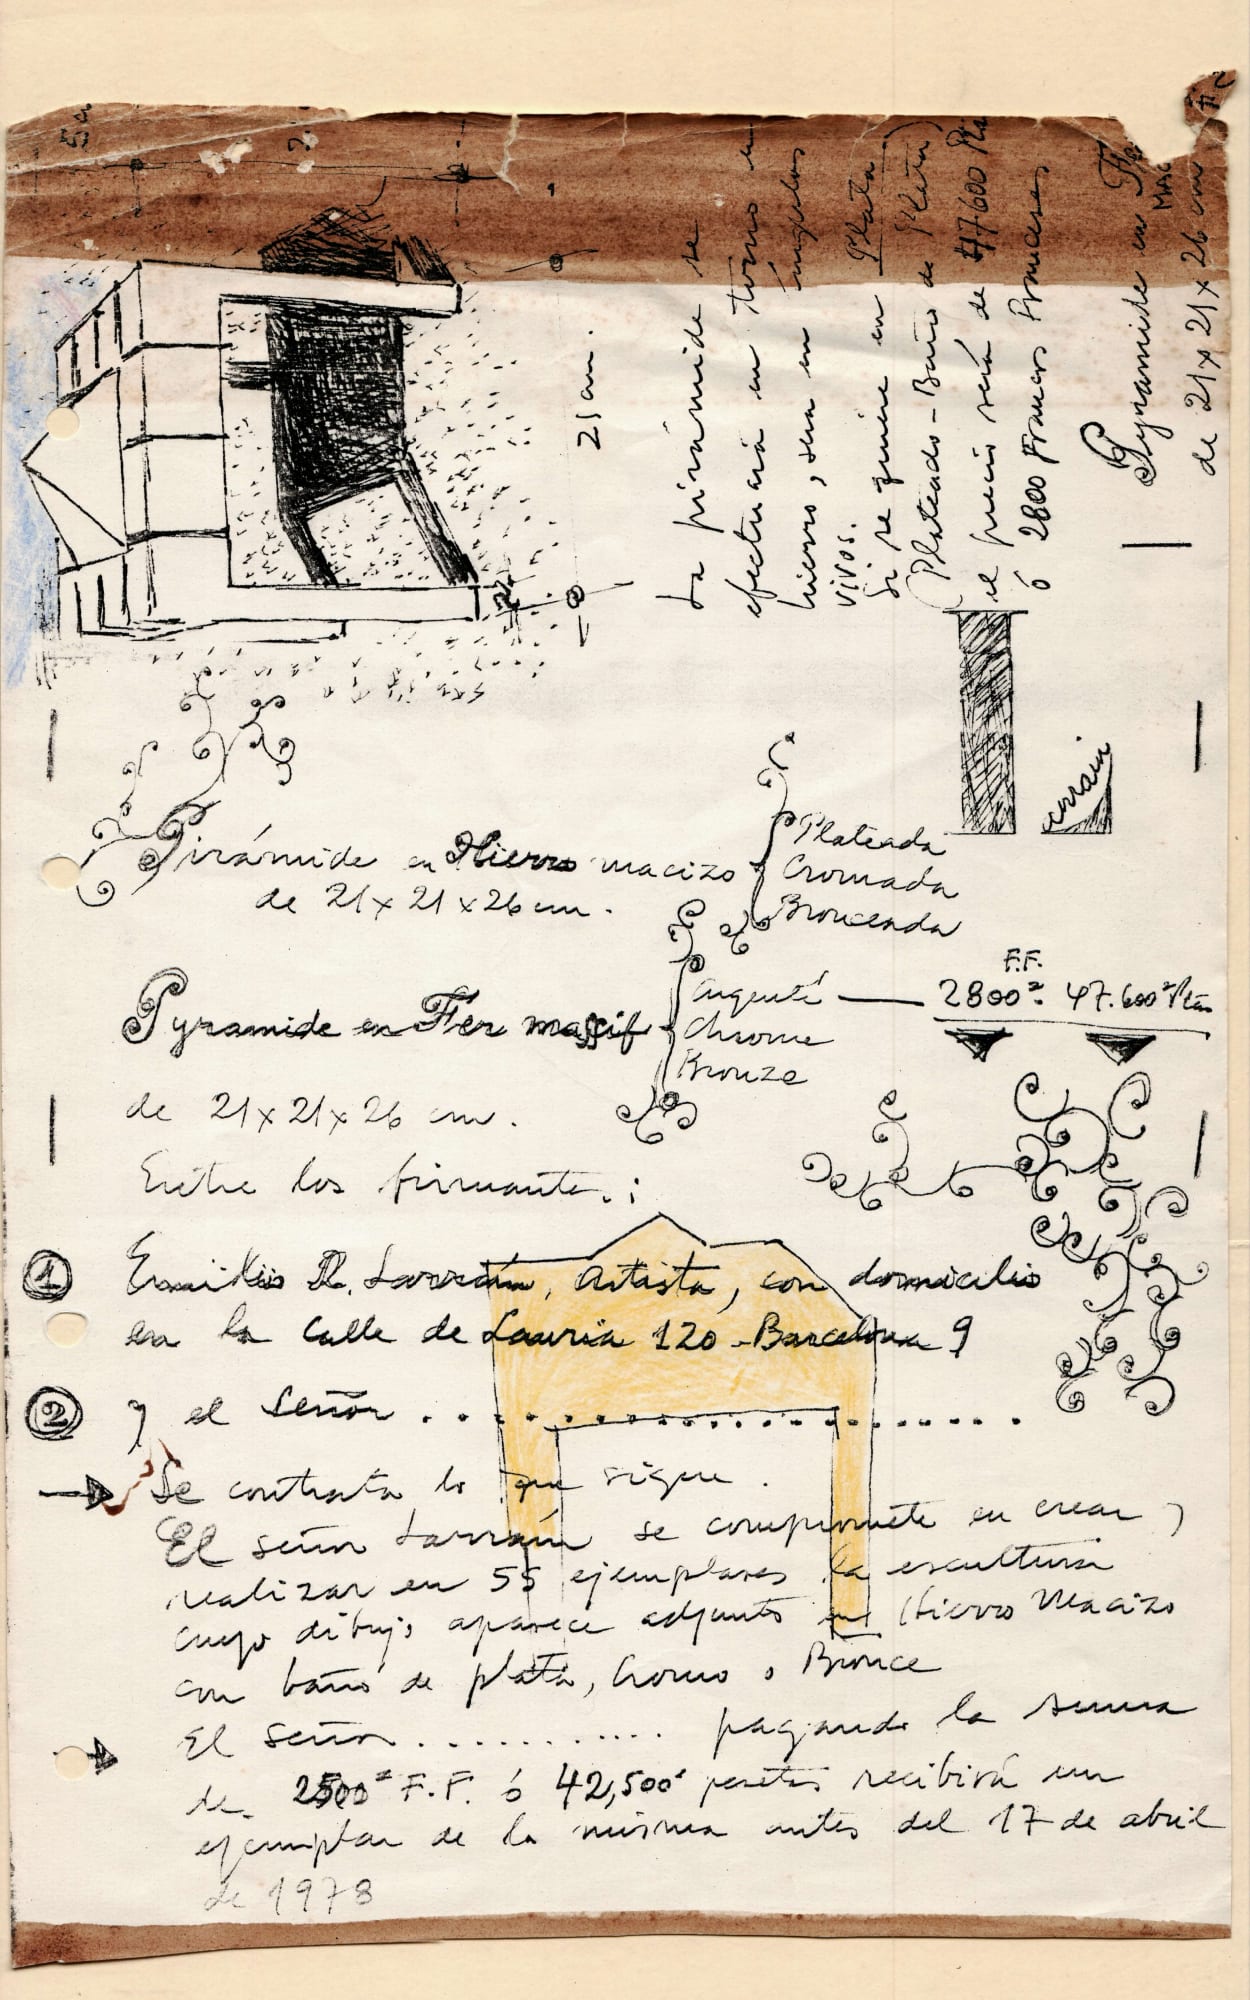 5
2.
21 cm.
2
La pirámide se
efectuará en torno en
hierro, sera en ángulos
vivos.
Si se quiere en Plata
(Plateado - Baño de Plata)
el precio será de 47600 Pts
ó 2800 Francos Franceses
Pyramide en F
de 21 x 21 x 26 cm
arrain
Pirámide en Hierro macizo
de 21 x 21 x 26 cm.
Plateada
Cromada
Bronceada
Pyramide en Fer massif
Argenté
Chrome
Bronze
F.F.
2800= 47.600= Ptas
de 21 x 21 x 26 cm.
Entre los firmantes:
1 Emilio R. Larraín, Artista, con domicilio
en la calle de Lauria 120 - Barcelona 9
2 y el Señor . . . . . . . . . . . . . . . . . . . . . . . .
Se contrata lo que sigue.
El señor Larraín se compromete en crear y
realizar en 55 ejemplares la escultura
cuyo dibujo aparece adjunto en Hierro Macizo
con baño de plata, Cromo o Bronce
El señor . . . . . . . . . . . pagando la suma
de 2500= F.F. ó 42,500= pesetas recibirá un
ejemplar de la misma antes del 17 de abril
de 1978